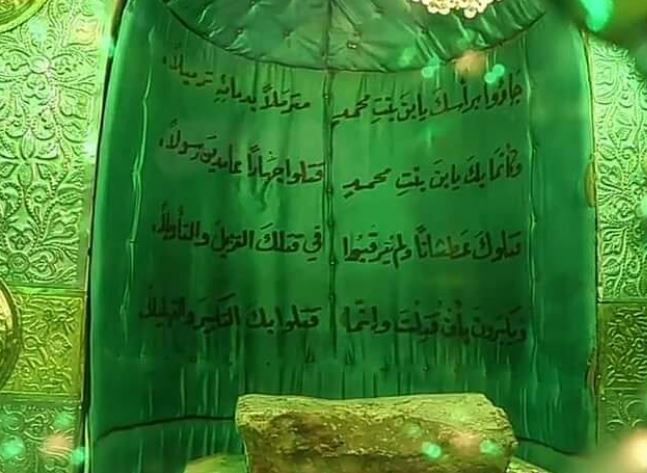 جاؤوا برأسك يا ابن بنت محمدٍ مترملاً بدمائهِ ترميلاً
وكأنما بك يا ابن بنتِ محمدٍ قتلوا جهاراً عامدين رسولاً
قتلوكَ عطشاناً ولم يترقبوا في قتلكَ التنزيلَ والتأويلاً
ويكبرونَ بأن قُتِلْتَ وإنّما قتلوا بك التكبيرَ والتهليلاً